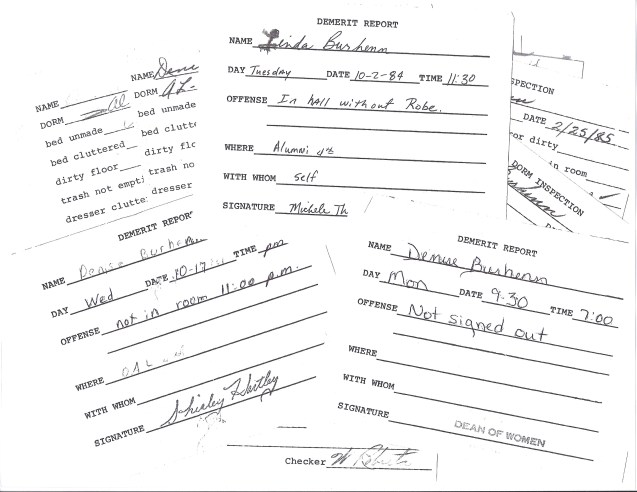 DEMERIT REPORT
NAME Linda Bushenn
DAY Tuesday DATE 10-2-84 TIME 11:30
OFFENSE In hall without Robe.
WHERE Alumni
WITH WHOM self
SIGNATURE Michele Th
NAME
DORM
bed unmade
bed cluttered
dirty floor
trash not empti
dresser clutte
NAME Deni
DORM AL-
bed unmade
bed clutte
dirty flo
trash no
dresser
SPECTION
DATE 2/25/85
or dirty
in room
DORM INSPECTION
DEMERIT REPOR
NAME Denise Bushenn
DAY Wed DATE 10-17 TIME pm
OFFENSE not in room 11:00 p.m.
WHERE
WITH WHOM
SIGNATURE Shirley Hartley
DEMERIT REPORT
NAME Denise Bushenn
DAY Mon DATE 9-30 TIME 7:00
OFFENSE Not signed out
WHERE
WITH WHOM
SIGNATURE
DEAN OF WOMEN
Checker